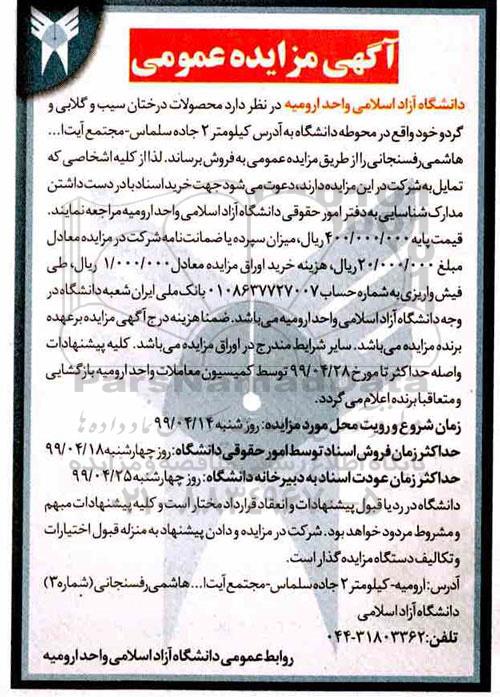 آگهی مزایده عمومی
دانشگاه آزاد اسلامی واحد ارومیه در نظر دارد محصولات درختان سیب و گلابی و
گردو خود واقع در محوطه دانشگاه به آدرس کیلومتر ۲ جاده سلماس-مجتمع آیت ا...
هاشمی رفسنجانی را از طریق مزایده عمومی به فروش برساند. لذا از کلیه اشخاصی که
تمایل به شرکت در این مزایده دارند، دعوت می شود جهت خرید اسناد با در دست داشتن
مدارک شناسایی به دفتر امور حقوقی دانشگاه آزاد اسلامی واحد ارومیه مراجعه نمایند.
قیمت پایه ۴۰۰/۰۰۰/۰۰۰ ریال، میزان سپرده یا ضمانت نامه شرکت در مزایده معادل
مبلغ ۲۰/۰۰۰/۰۰۰ ریال، هزینه خرید اوراق مزایده معادل ۱/۰۰۰/۰۰۰ ریال، طی
فیش واریزی به شماره حساب ۰۱۰۸۶۳۷۷۲۷۰۰۷ بانک ملی ایران شعبه دانشگاه در
وجه دانشگاه آزاد اسلامی واحد ارومیه می باشد. ضمنا هزینه درج آگهی مزایده بر عهده
برنده مزایده می باشد. سایر شرایط مندرج در اوراق مزایده می باشد. کلیه پیشنهادات
واصله حداکثر تا مورخ ۹۹/۰۴/۲۸ توسط کمیسیون معاملات واحد ارومیه بازگشایی
و متعاقبا برنده اعلام می گردد.
زمان شروع و رویت محل مورد مزایده: روز شنبه ۹۹/۰۴/۱۴
حداکثر زمان فروش اسناد توسط امور حقوقی دانشگاه: روز چهارشنبه ۹۹/۰۴/۱۸
حداکثر زمان عودت اسناد به دبیرخانه دانشگاه: روز چهارشنبه ۹۹/۰۴/۲۵
دانشگاه در رد یا قبول پیشنهادات و انعقاد قرارداد مختار است و کلیه پیشنهادات مبهم
و مشروط مردود خواهد بود. شرکت در مزایده و دادن پیشنهاد به منزله قبول اختیارات
و تکالیف دستگاه مزایده گذار است.
آدرس: ارومیه-کیلومتر ۲ جاده سلماس-مجتمع آیت ا... هاشمی رفسنجانی (شماره ۳)
دانشگاه آزاد اسلامی
تلفن: ۰۴۴-۳۱۸۰۳۳۶۲
روابط عمومی دانشگاه آزاد اسلامی واحد ارومیه
ParsNamadData